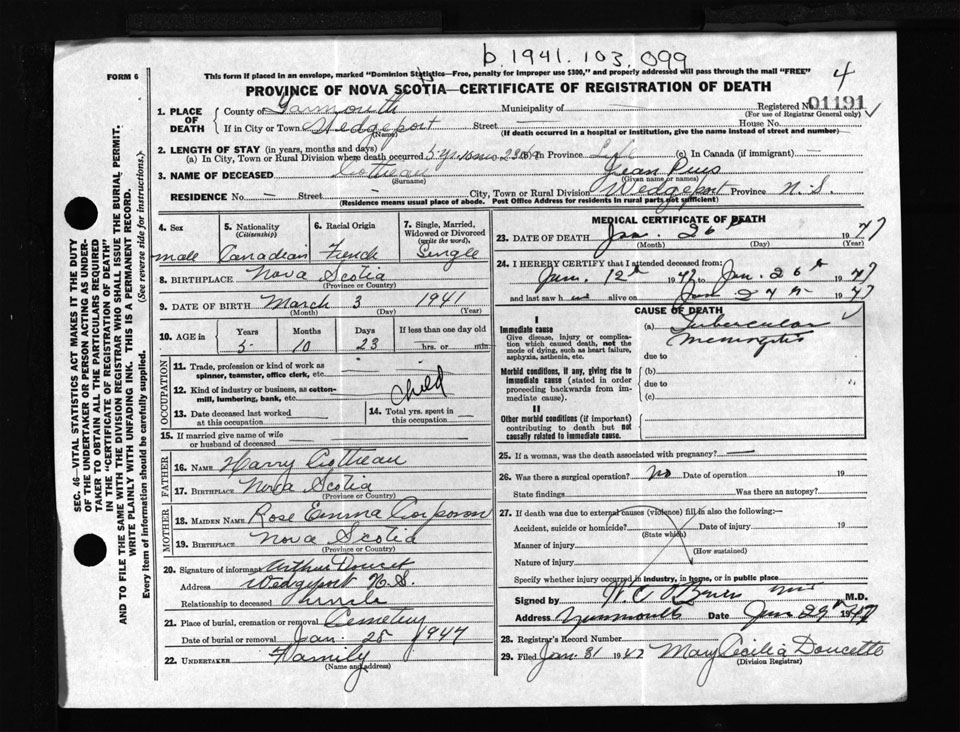 b. 1941. 103. 099
4
FORM 6
This form if placed in an envelope, marked "Dominion Statistics—Free, penalty for improper use $300," and properly addressed will pass through the mail "FREE"
PROVINCE OF NOVA SCOTIA—CERTIFICATE OF REGISTRATION OF DEATH
Registered No. 01191
(For use of Registrar General only)
1. PLACE OF DEATH
County of Yarmouth Municipality of
If in City or Town Wedgeport Street House No.
(Name) (If death occurred in a hospital or institution, give the name instead of street and number)
2. LENGTH OF STAY (in years, months and days)
(a) In City, Town or Rural Division where death occurred 5 yrs 10 mos 23 (b) In Province Life (c) In Canada (if immigrant) —
3. NAME OF DECEASED Cottreau Jean
(Surname) (Given name or names)
RESIDENCE No. — Street — City, Town or Rural Division Wedgeport Province N. S.
(Residence means usual place of abode. Post Office Address for residents in rural parts not sufficient)
4. Sex 5. Nationality (Citizenship) 6. Racial Origin 7. Single, Married, Widowed or Divorced (write the word)
male Canadian French Single
8. BIRTHPLACE Nova Scotia
(Province or Country)
9. DATE OF BIRTH March 3 1941
(Month) (Day) (Year)
10. AGE in Years Months Days If less than one day old
5 10 23 hrs. or min.
OCCUPATION
11. Trade, profession or kind of work as spinner, teamster, office clerk, etc.
12. Kind of industry or business, as cotton-mill, lumbering, bank, etc.
Child
13. Date deceased last worked at this occupation
14. Total yrs. spent in this occupation
15. If married give name of wife or husband of deceased
FATHER
16. NAME Harry Cottreau
17. BIRTHPLACE Nova Scotia
(Province or Country)
MOTHER
18. MAIDEN NAME Rose Emma Corporon
19. BIRTHPLACE Nova Scotia
(Province or Country)
20. Signature of informant Arthur Doucet
Address Wedgeport N.S.
Relationship to deceased uncle
21. Place of burial, cremation or removal Cemetery
Date of burial or removal Jan. 28 1947
22. UNDERTAKER Family
(Name and address)
MEDICAL CERTIFICATE OF DEATH
23. DATE OF DEATH Jan. 26th 1947
(Month) (Day) (Year)
24. I HEREBY CERTIFY that I attended deceased from:
Jan. 12th 1947 to Jan. 26th 1947
and last saw him alive on Jan 1947
CAUSE OF DEATH
I
Immediate cause
Give disease, injury or complication which caused death, not the mode of dying, such as heart failure, asphyxia, asthenia, etc.
(a) Tubercular
Meningitis
due to
Morbid conditions, if any, giving rise to immediate cause (stated in order proceeding backwards from immediate cause).
(b)
due to
(c)
II
Other morbid conditions (if important) contributing to death but not causally related to immediate cause.
25. If a woman, was the death associated with pregnancy? —
26. Was there a surgical operation? No Date of operation 19
State findings Was there an autopsy?
27. If death was due to external causes (violence) fill in also the following:—
Accident, suicide or homicide? Date of injury 19
(State which)
Manner of injury
(How sustained)
Nature of injury
Specify whether injury occurred in industry, in home, or in public place
Signed by M.D.
Address Yarmouth Date Jan 29th 1947
28. Registrar's Record Number
29. Filed Jan 31 1947 Mary Cecilia Doucette
(Division Registrar)
SEC. 46—VITAL STATISTICS ACT MAKES IT THE DUTY
OF THE UNDERTAKER OR PERSON ACTING AS UNDER-
TAKER TO OBTAIN ALL THE PARTICULARS REQUIRED
IN THE "CERTIFICATE OF REGISTRATION OF DEATH"
AND TO FILE THE SAME WITH THE DIVISION REGISTRAR WHO SHALL ISSUE THE BURIAL PERMIT.
WRITE PLAINLY WITH UNFADING INK. THIS IS A PERMANENT RECORD.
Every item of information should be carefully supplied. (See reverse side for instructions.)